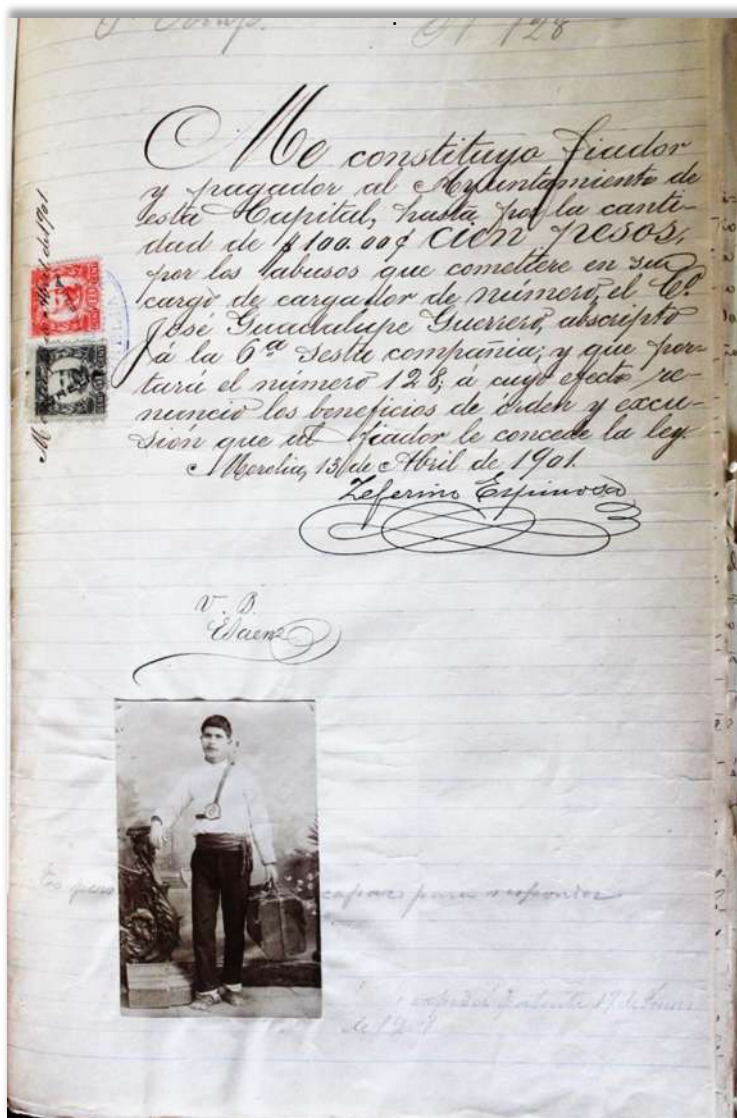 6ª Comp. Nº 128
Me constituyo fiador
y pagador al Ayuntamiento de
esta Capital, hasta por la canti-
dad de $100.00¢ cien pesos,
por los abusos que cometiere en su
cargo de cargador de número, el C.
José Guadalupe Guerrero, abscripto
á la 6ª Sesta compañia; y que por-
tará el número 128; á cuyo efecto re-
nuncio los beneficios de órden y excu-
sión que al fiador le concede la ley.
Morelia, 13 de Abril de 1901.
Zeferino Espinosa
V. B.
ESaenz
Es capaz para responder
expedir patente 17 de
de
Abril de 1901